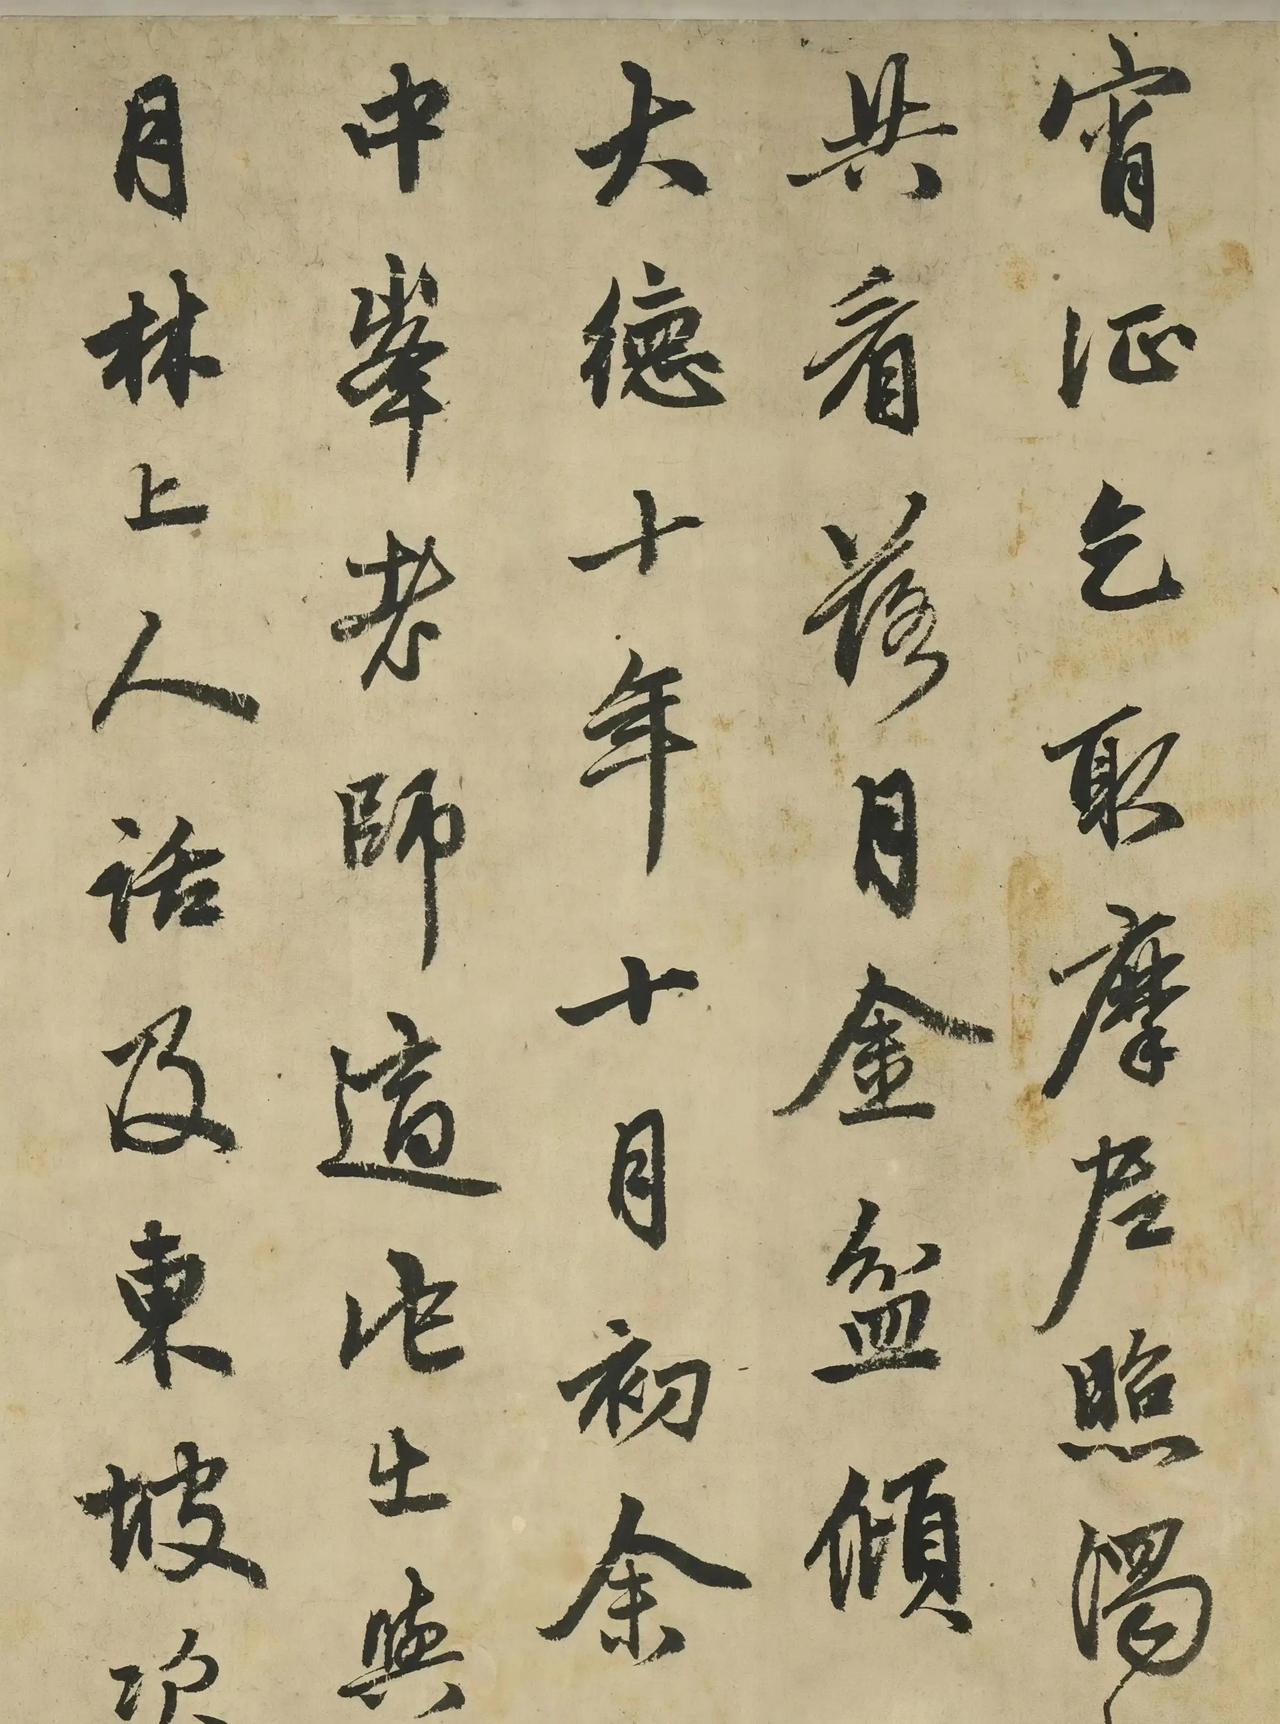 宵征乞取摩尼照濁
共看落月金盆傾
大德十年十月初余
中峯老師道此與
月林上人話及東坡次